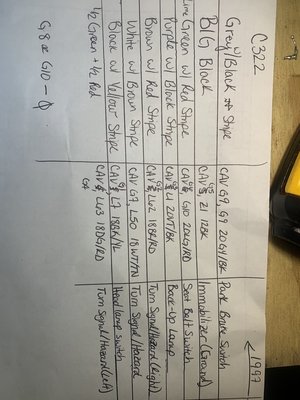 C322
1997
Gray/Black Stripe CAV G9, G9 20GY/BK Park Brake Switch
B/G Black CAV Z1 12BK Immobilizer (Ground)
Lime Green w/ Red Stripe CAV G10 20LG/RD Seat Belt Switch
Purple w/ Black Stripe CAV L1 20VT/BK Back-Up Lamp
Brown w/ Red Stripe CAV L62 18BR/RD Turn Signal/Hazard (Right)
White w/ Brown Stripe CAV G7, L50 18WT/TN Turn Signal/Hazard
Black w/ Yellow Stripe CAV L7 18BK/YL Headlamp Switch
1/2 Green + 1/2 Red CAV L63 18DG/RD Turn Signal/Hazard (Left)
G8 or G10 -